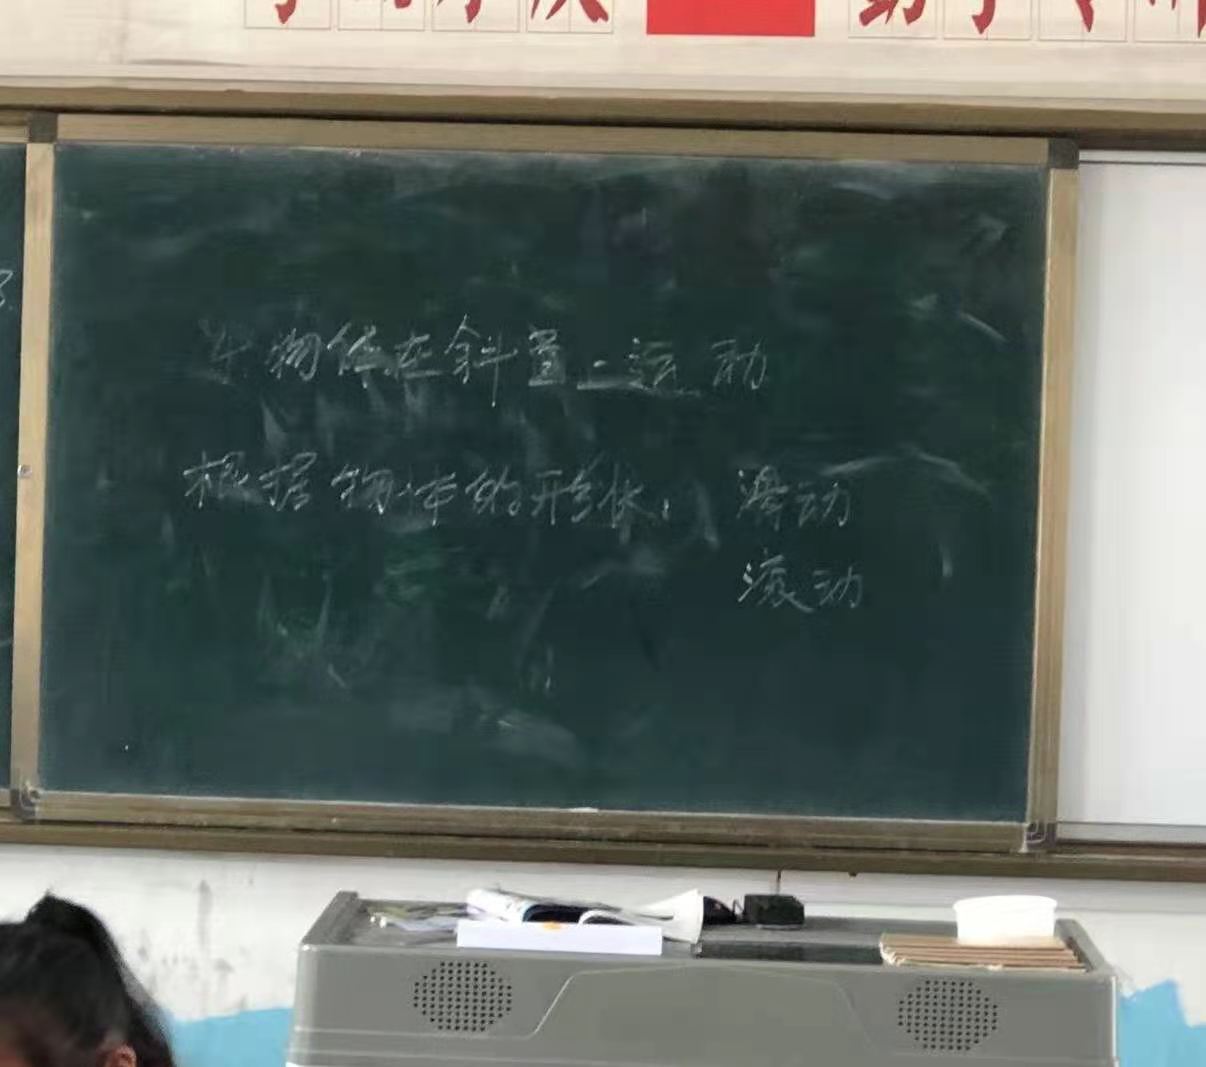 4.物体在斜面上运动
根据物体的形状， 滑动
滚动